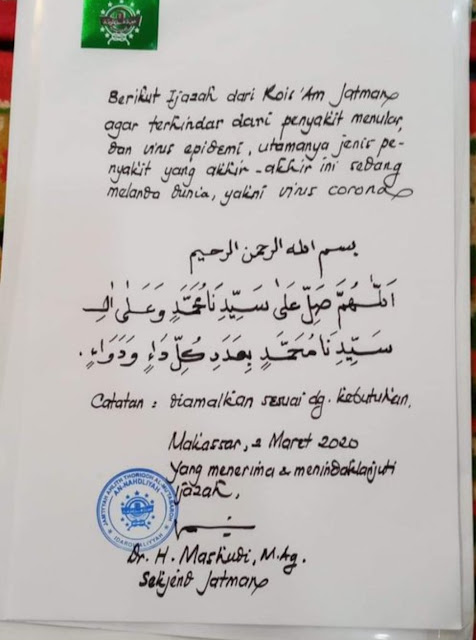 Berikut Ijazah dari Rois 'Am Jatman
agar terhindar dari penyakit menular,
dan virus epidemi, utamanya jenis pe-
nyakit yang akhir-akhir ini sedang
melanda dunia, yakni virus corona
بسم الله الرحمن الرحيم
اَللّٰهُمَّ صَلِّ عَلىٰ سَيِّدِنَا مُحَمَّدٍ وَعَلىٰ اٰلِ
سَيِّدِنَا مُحَمَّدٍ بِعَدَدِ كُلِّ دَاءٍ وَدَوَاءٍ.
Catatan : diamalkan sesuai dg. kebutuhan.
Makassar, 2 Maret 2020
Yang menerima & menindaklanjuti
ijazah,
JAM'IYYAH AHLITH THORIQOH AL-MU'TABAROH
AN-NAHDLIYAH
IDAROH ALIYYAH
Dr. H. Mashudi, M.Ag.
Sekjend Jatman